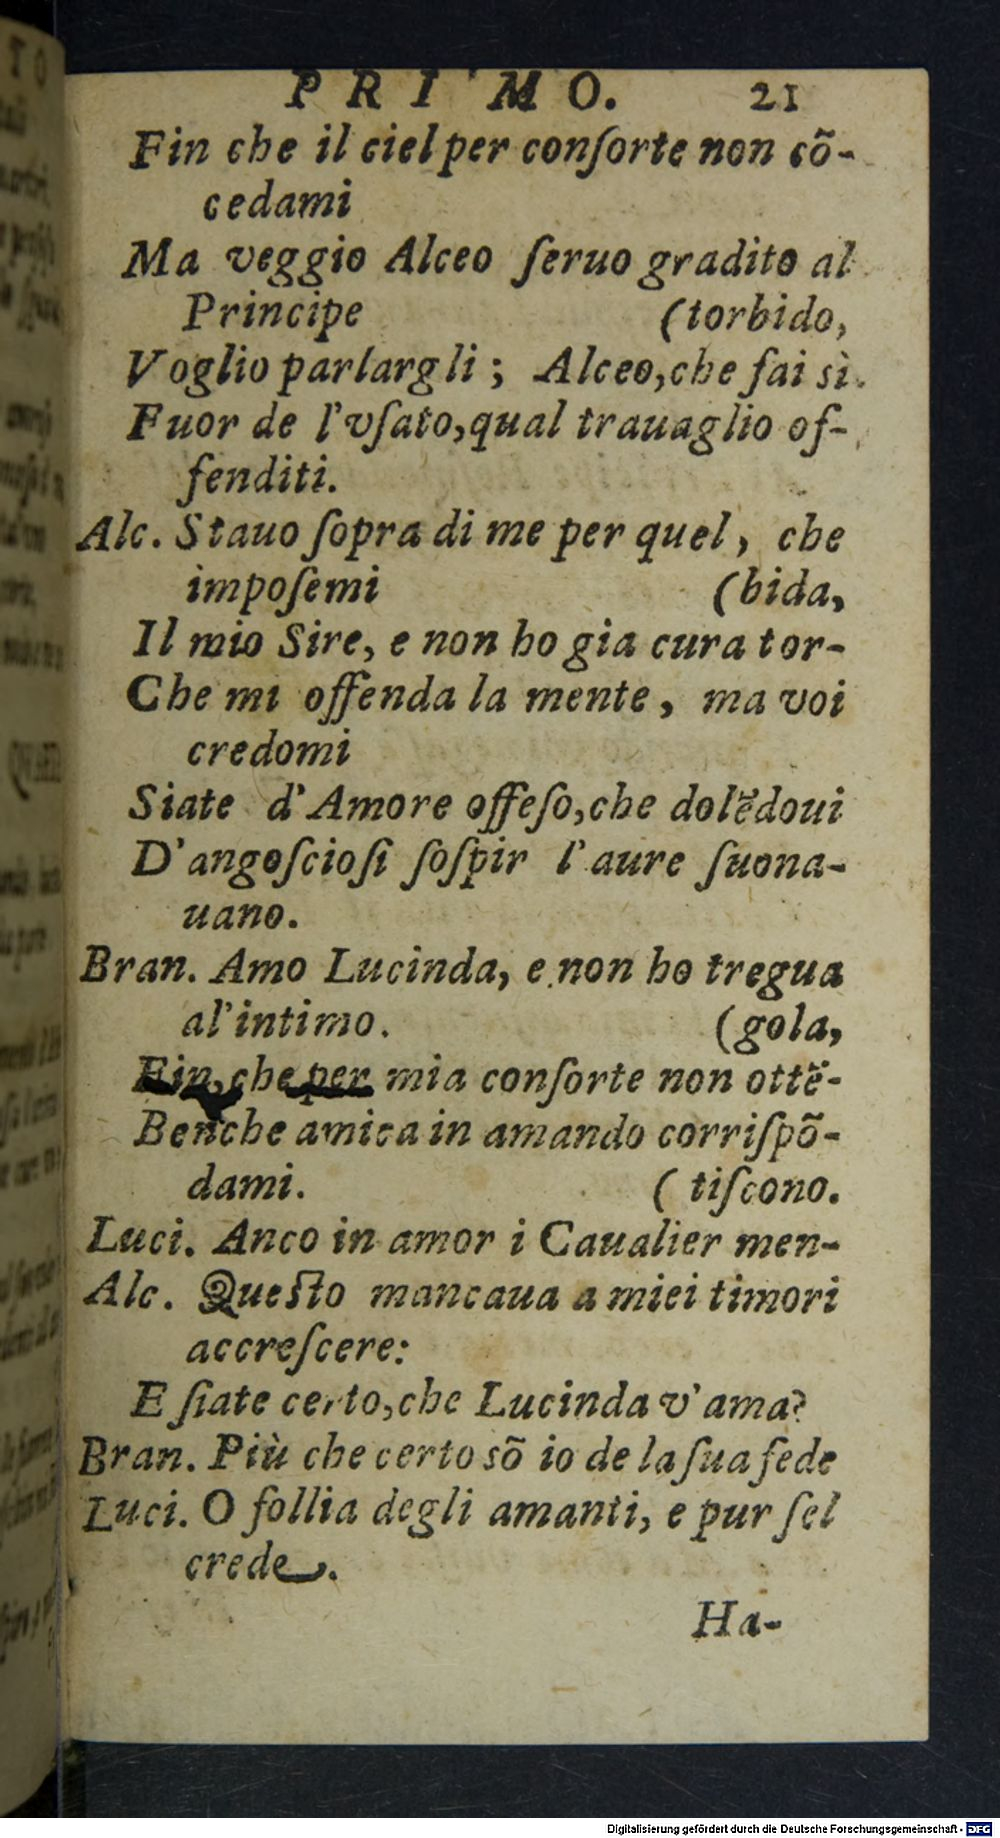 PRIMO. 21
Fin che il ciel per conſorte non cõ-
cedami
Ma veggio Alceo ſeruo gradito al
Principe (torbido,
Voglio parlargli; Alceo, che fai sì
Fuor de l'vſato, qual trauaglio of-
fenditi.
Alc. Stauo ſopra di me per quel, che
impoſemi (bida,
Il mio Sire, e non ho gia cura tor-
Che mi offenda la mente, ma voi
credomi
Siate d'Amore offeſo, che dolẽdoui
D'angoſcioſi ſoſpir l'aure ſuona-
uano.
Bran. Amo Lucinda, e non ho tregua
al'intimo. (gola,
Fin, che per mia conſorte non ottẽ-
Benche amica in amando corriſpõ-
dami. (tiſcono.
Luci. Anco in amor i Caualier men-
Alc. Queſto mancaua a miei timori
accreſcere:
E ſiate certo, che Lucinda v'ama?
Bran. Più che certo sõ io de la ſua fede
Luci. O follia degli amanti, e pur ſel
crede.
Ha-
Digitalisierung gefördert durch die Deutsche Forschungsgemeinschaft - DFG